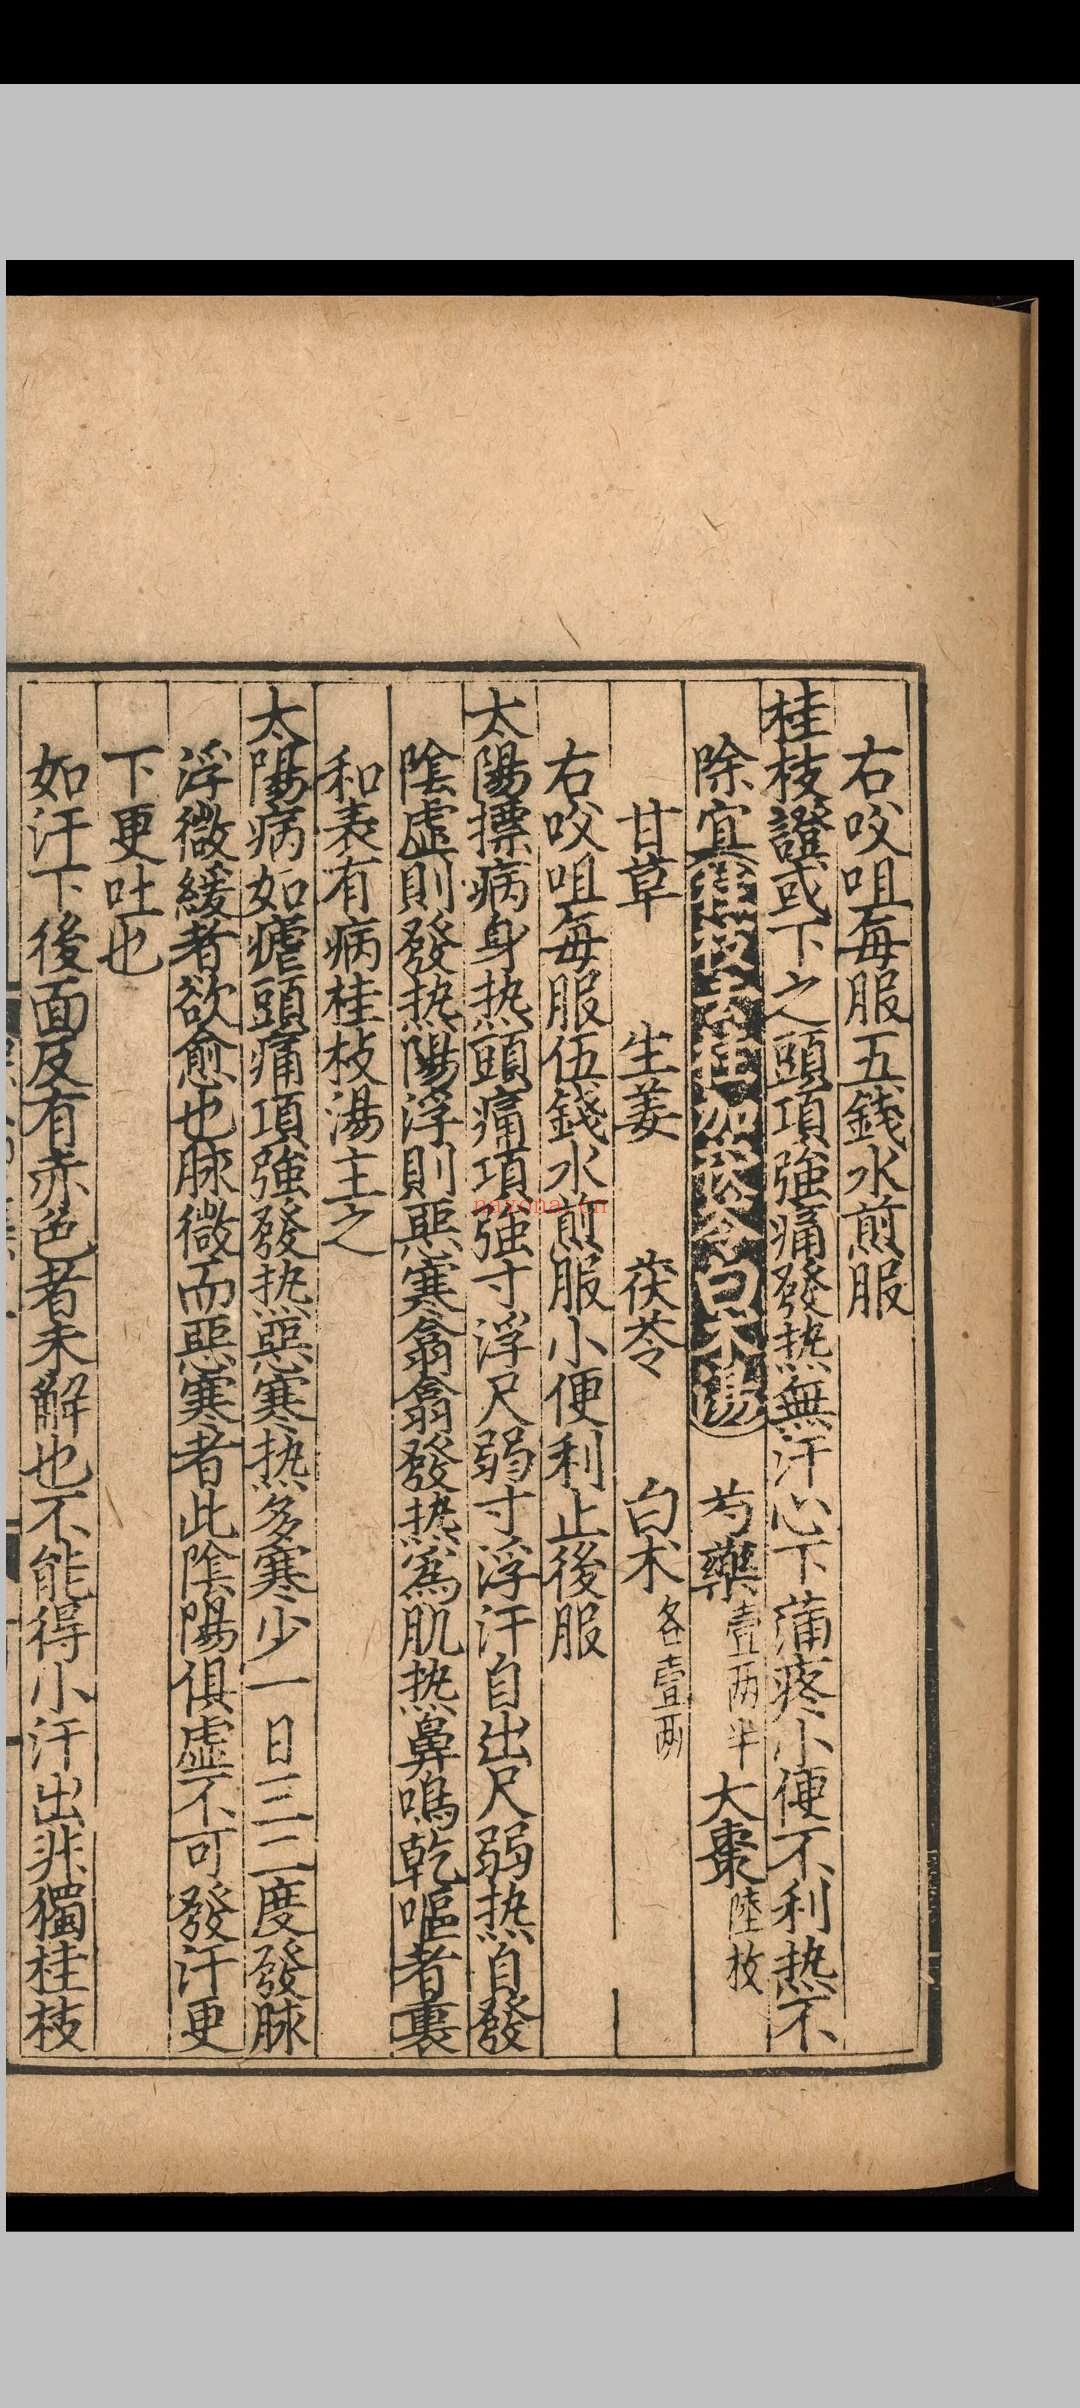 右㕮咀每服五錢水煎服
桂枝證或下之頭項強痛發热無汗心下蒲疼小便不利热不
除宜桂枝去桂加茯苓白术湯 芍藥壹两半大棗陸枚
甘草 生姜 茯苓 白术各壹两
右㕮咀每服伍錢水煎服小便利止後服
太陽摽病身热頭痛項強寸浮尺弱寸浮汗自出尺弱热自發
陰虛則發热陽浮則惡寒翕翕發热為肌热鼻鳴乾嘔者裏
和表有病桂枝湯主之
太陽病如瘧頭痛項強發热惡寒热多寒少一日三二度發脉
浮微緩者欲愈也脉微而惡寒者此陰陽俱虛不可發汗更
下更吐也
如汗下後面反有赤色者未解也不能得小汗出非獨桂枝
nayona.cn